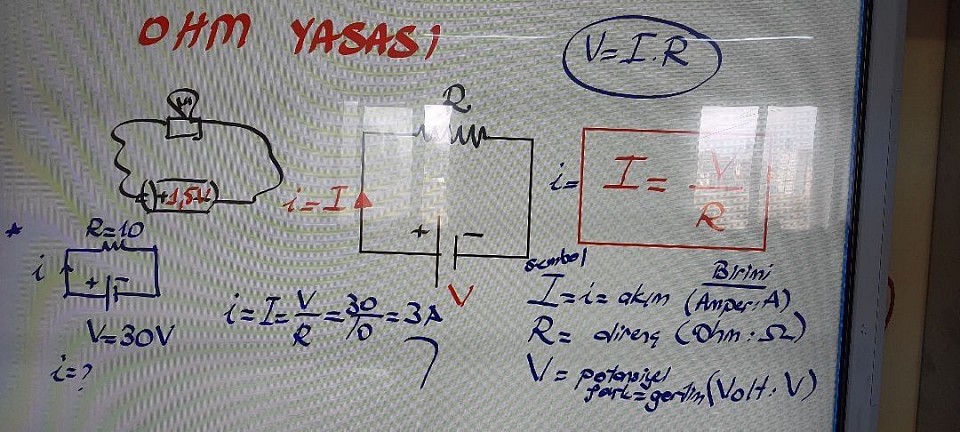 OHM YASASI
V=I.R
R
+1,5V
i=I
+ -
V
i=
I= V/R
* R=10
i
+ -
V=30V
i=?
i=I=V/R=30/10=3A
sembol
Birimi
I=i= akım (Amper:A)
R= direnç (Ohm:Ω)
V= potansiyel
fark=gerilim (Volt:V)